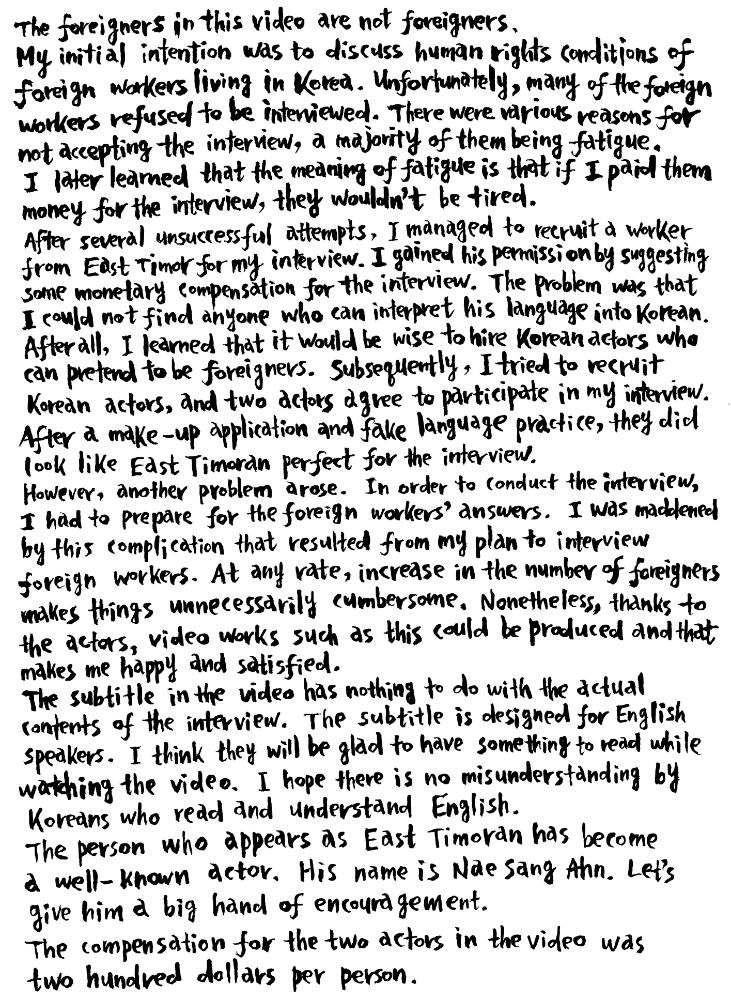 The foreigners in this video are not foreigners.
My initial intention was to discuss human rights conditions of
foreign workers living in Korea. Unfortunately, many of the foreign
workers refused to be interviewed. There were various reasons for
not accepting the interview, a majority of them being fatigue.
I later learned that the meaning of fatigue is that if I paid them
money for the interview, they wouldn't be tired.
After several unsuccessful attempts, I managed to recruit a worker
from East Timor for my interview. I gained his permission by suggesting
some monetary compensation for the interview. The problem was that
I could not find anyone who can interpret his language into Korean.
After all, I learned that it would be wise to hire Korean actors who
can pretend to be foreigners. Subsequently, I tried to recruit
Korean actors, and two actors agree to participate in my interview.
After a make-up application and fake language practice, they did
look like East Timoran perfect for the interview.
However, another problem arose. In order to conduct the interview,
I had to prepare for the foreign workers' answers. I was maddened
by this complication that resulted from my plan to interview
foreign workers. At any rate, increase in the number of foreigners
makes things unnecessarily cumbersome. Nonetheless, thanks to
the actors, video works such as this could be produced and that
makes me happy and satisfied.
The subtitle in the video has nothing to do with the actual
contents of the interview. The subtitle is designed for English
speakers. I think they will be glad to have something to read while
watching the video. I hope there is no misunderstanding by
Koreans who read and understand English.
The person who appears as East Timoran has become
a well-known actor. His name is Nae Sang Ahn. Let's
give him a big hand of encouragement.
The compensation for the two actors in the video was
two hundred dollars per person.